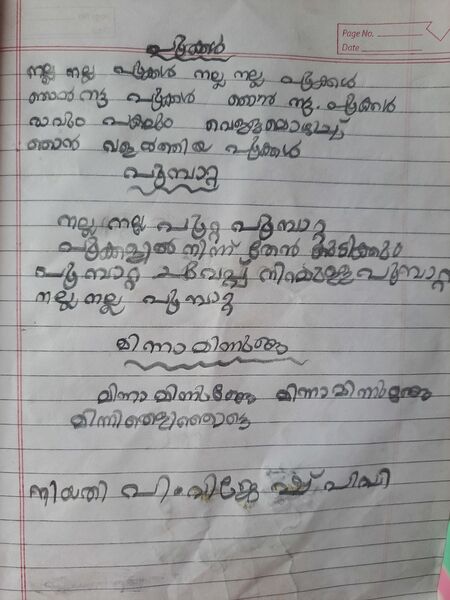 Page No.
Date
പൂക്കൾ
നല്ല നല്ല പൂക്കൾ നല്ല നല്ല പൂക്കൾ
ഞാൻ നട്ട പൂക്കൾ ഞാൻ നട്ട പൂക്കൾ
രാവും പകലും വെള്ളമൊഴിച്ച്
ഞാൻ വളർത്തിയ പൂക്കൾ
പൂമ്പാറ്റ
നല്ല നല്ല പൂമ്പാറ്റ
പൂക്കളിൽ നിന്ന് തേൻ കുടിക്കും
പൂമ്പാറ്റ ചുവപ്പ് നിറമുള്ള പൂമ്പാറ്റ
നല്ല നല്ല പൂമ്പാറ്റ
മിന്നാമിനുങ്ങേ
മിന്നാമിനുങ്ങേ മിന്നാമിനുങ്ങേ
നിയതി പി.